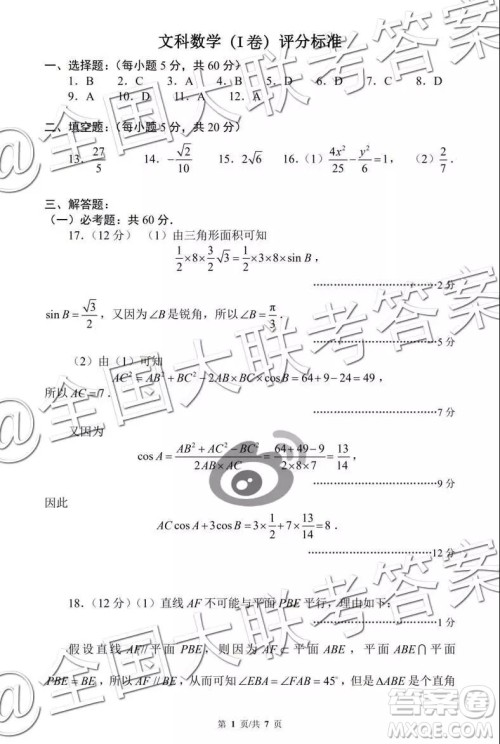 文科数学（I 卷）评分标准
一、选择题：（每小题 5 分，共 60 分）
1．B 2．C 3．A 4．D 5．B 6．C 7．C 8．D
9．A 10．D 11．A 12．A
二、填空题：（每小题 5 分，共 20 分）
13．27/5 14．−√2/10 15．2√6 16．（1）4x²/25 − y²/6 = 1，（2）2/7．
三、解答题：
（一）必考题：共 60 分．
17．（12 分）（1）由三角形面积可知
1/2×8×3/2√3 = 1/2×3×8×sin B，
2.5 分
sin B = √3/2，又因为∠B是锐角，所以∠B = π/3．
5 分
（2）由（1）可知
AC² = AB² + BC² − 2AB×BC×cosB = 64+9−24 = 49，
所以 AC = 7．
7 分
又因为
cos A = (AB² + AC² − BC²)/(2AB×AC) = (64+49−9)/(2×8×7) = 13/14，
9 分
因此
AC cos A + 3cos B = 3×1/2 + 7×13/14 = 8．
12 分
18．（12 分）（1）直线 AF 不可能与平面 PBE 平行，理由如下：
假设直线 AF// 平面 PBE，则因为 AF⊂平面 ABE，平面 ABE∩平面
PBE = BE，所以 AF//BE，从而可知∠EBA = ∠FAB = 45°，但是ΔABE 是个直角
第 1 页/共 7 页
@全国大联考答案
@全国大联考答案
@全国大联考答案
答案圈
MXQE.COM